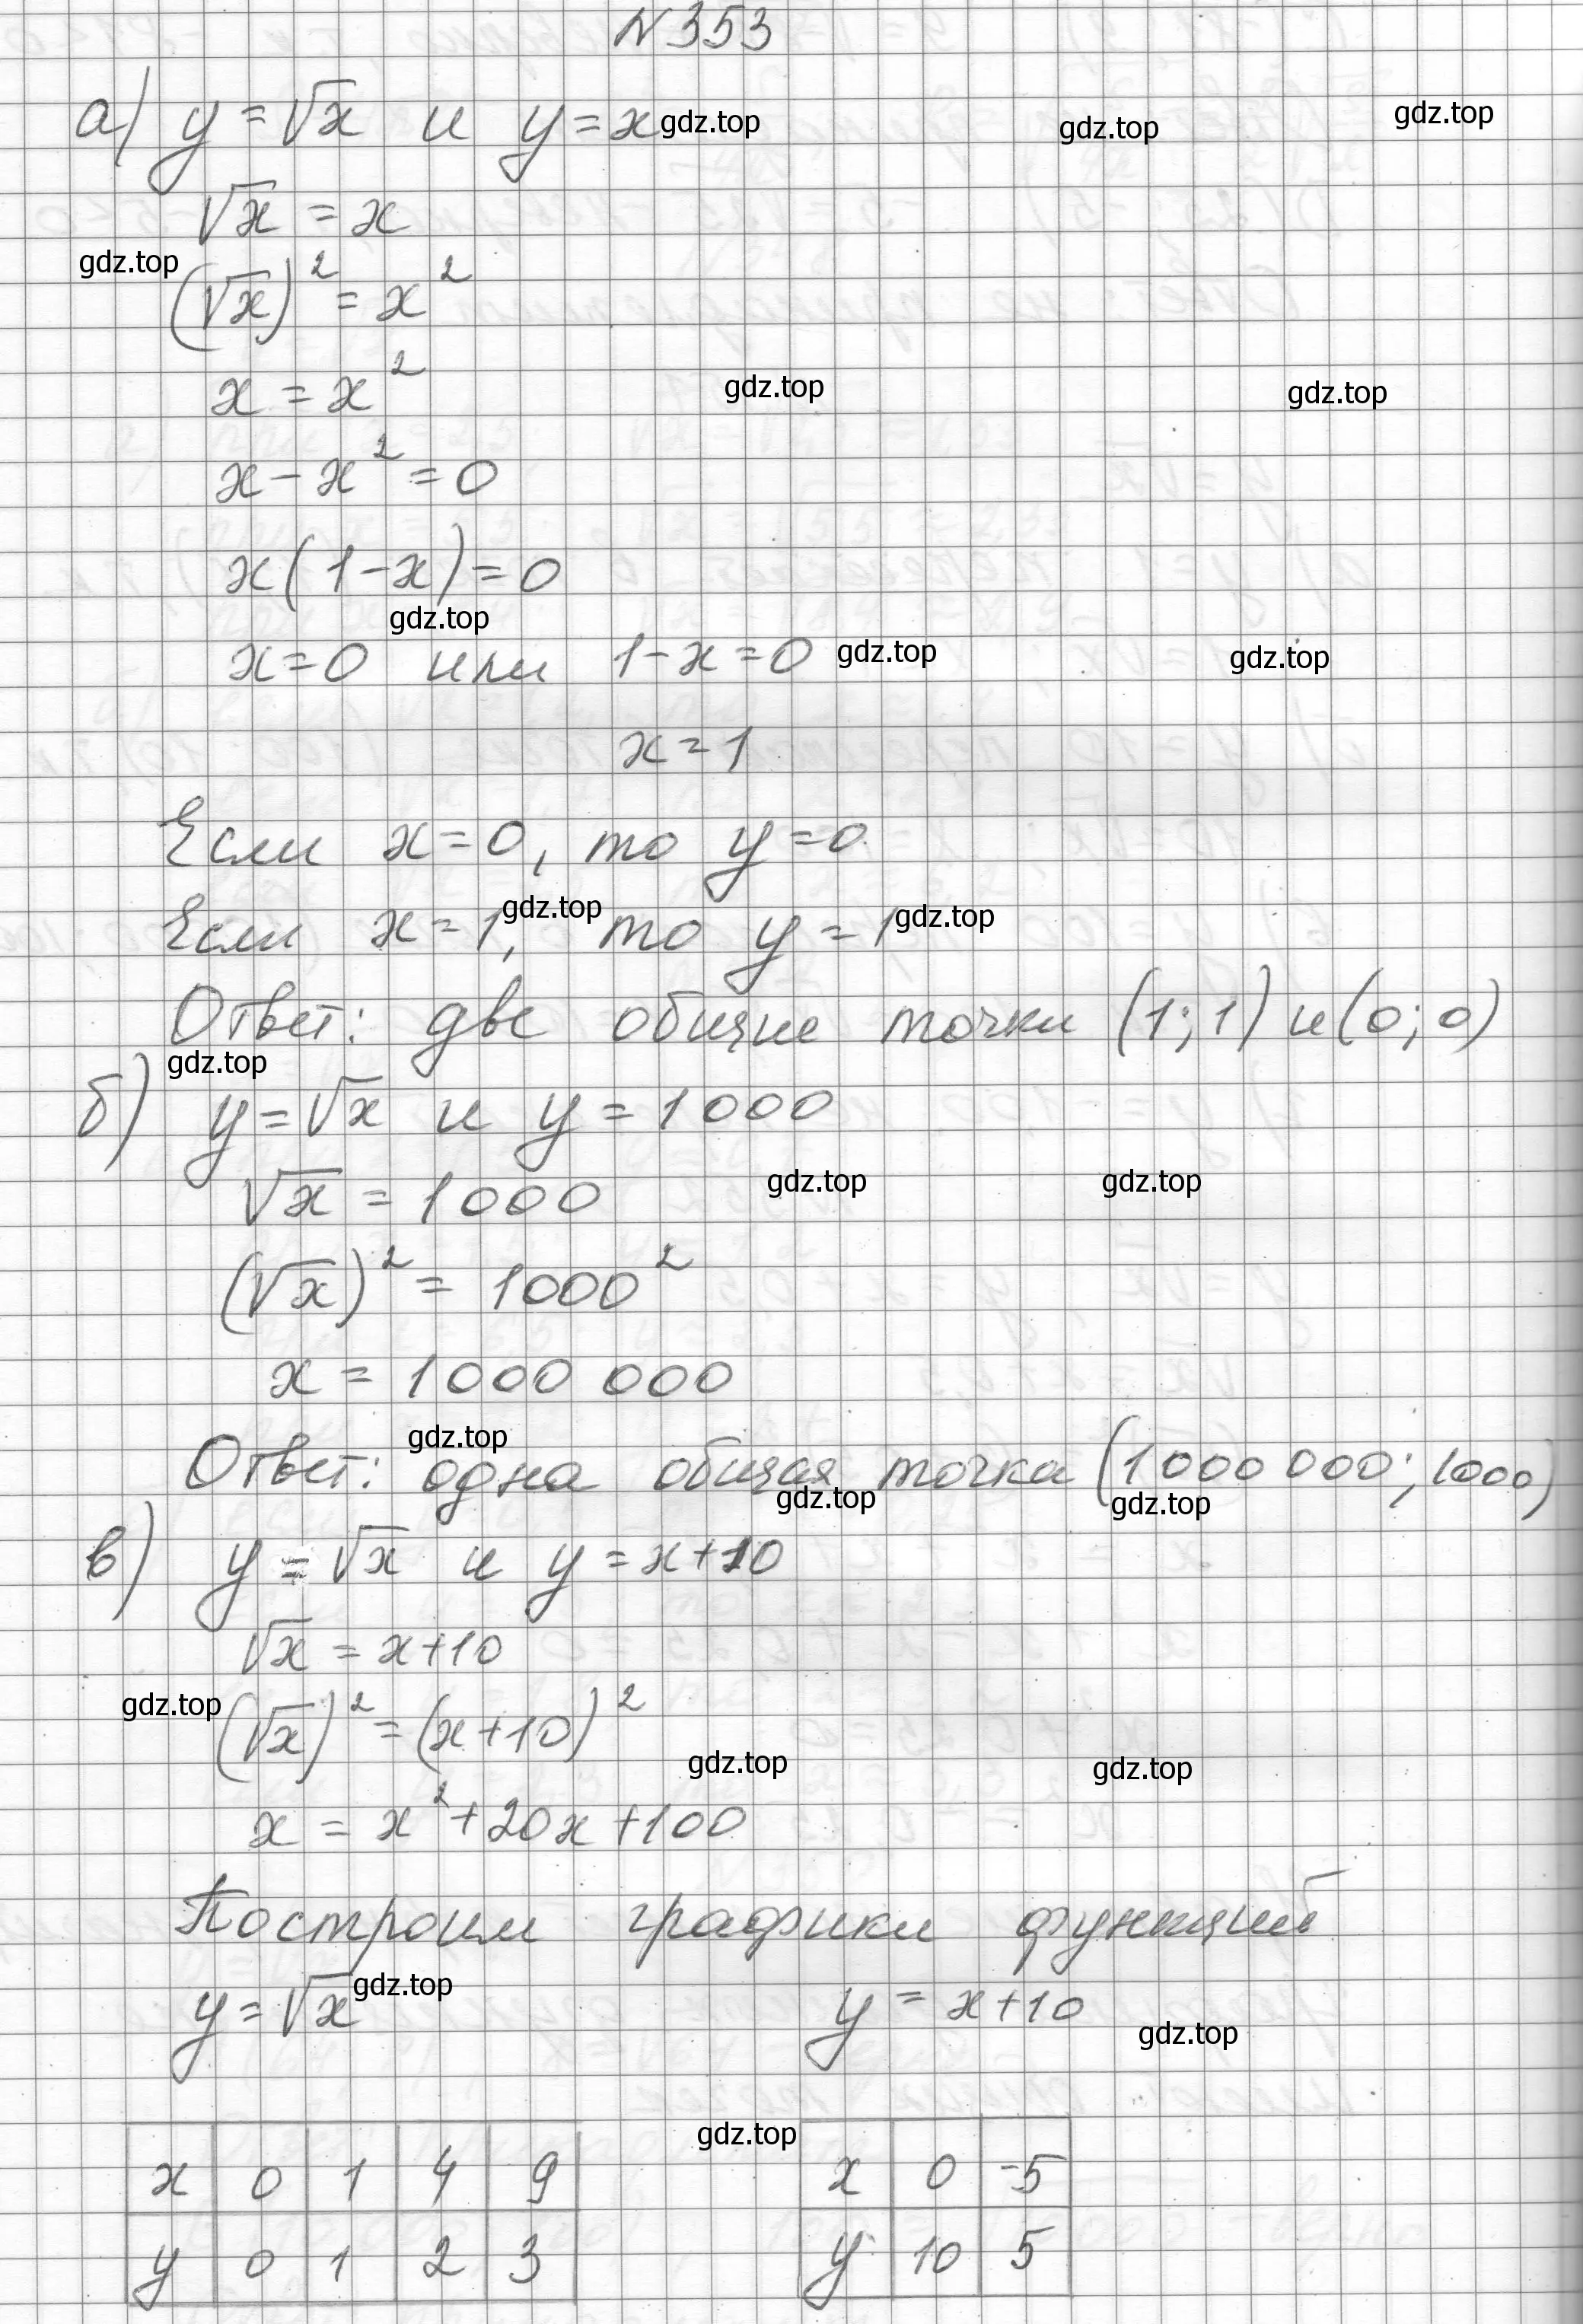 N353
а) y = √x и y = x gdz.top gdz.top gdz.top
√x = x
gdz.top
(√x)² = x²
x = x² gdz.top gdz.top
x - x² = 0
x(1 - x) = 0
gdz.top
x = 0 или 1 - x = 0 gdz.top gdz.top
x = 1
Если x = 0, то y = 0
Если x = 1, то y = 1 gdz.top gdz.top
Ответ: две общие точки (1; 1) и (0; 0)
gdz.top
б) y = √x и y = 1000
√x = 1000 gdz.top gdz.top
(√x)² = 1000²
x = 1000 000
gdz.top
Ответ: одна общая точка (1 000 000; 1000)
gdz.top gdz.top
в) y = √x и y = x + 10
√x = x + 10
gdz.top
(√x)² = (x + 10)²
gdz.top gdz.top
x = x² + 20x + 100
Построим графики функций
y = √x gdz.top y = x + 10
gdz.top
gdz.top
x 0 1 4 9 x 0 -5
y 0 1 2 3 y 10 5